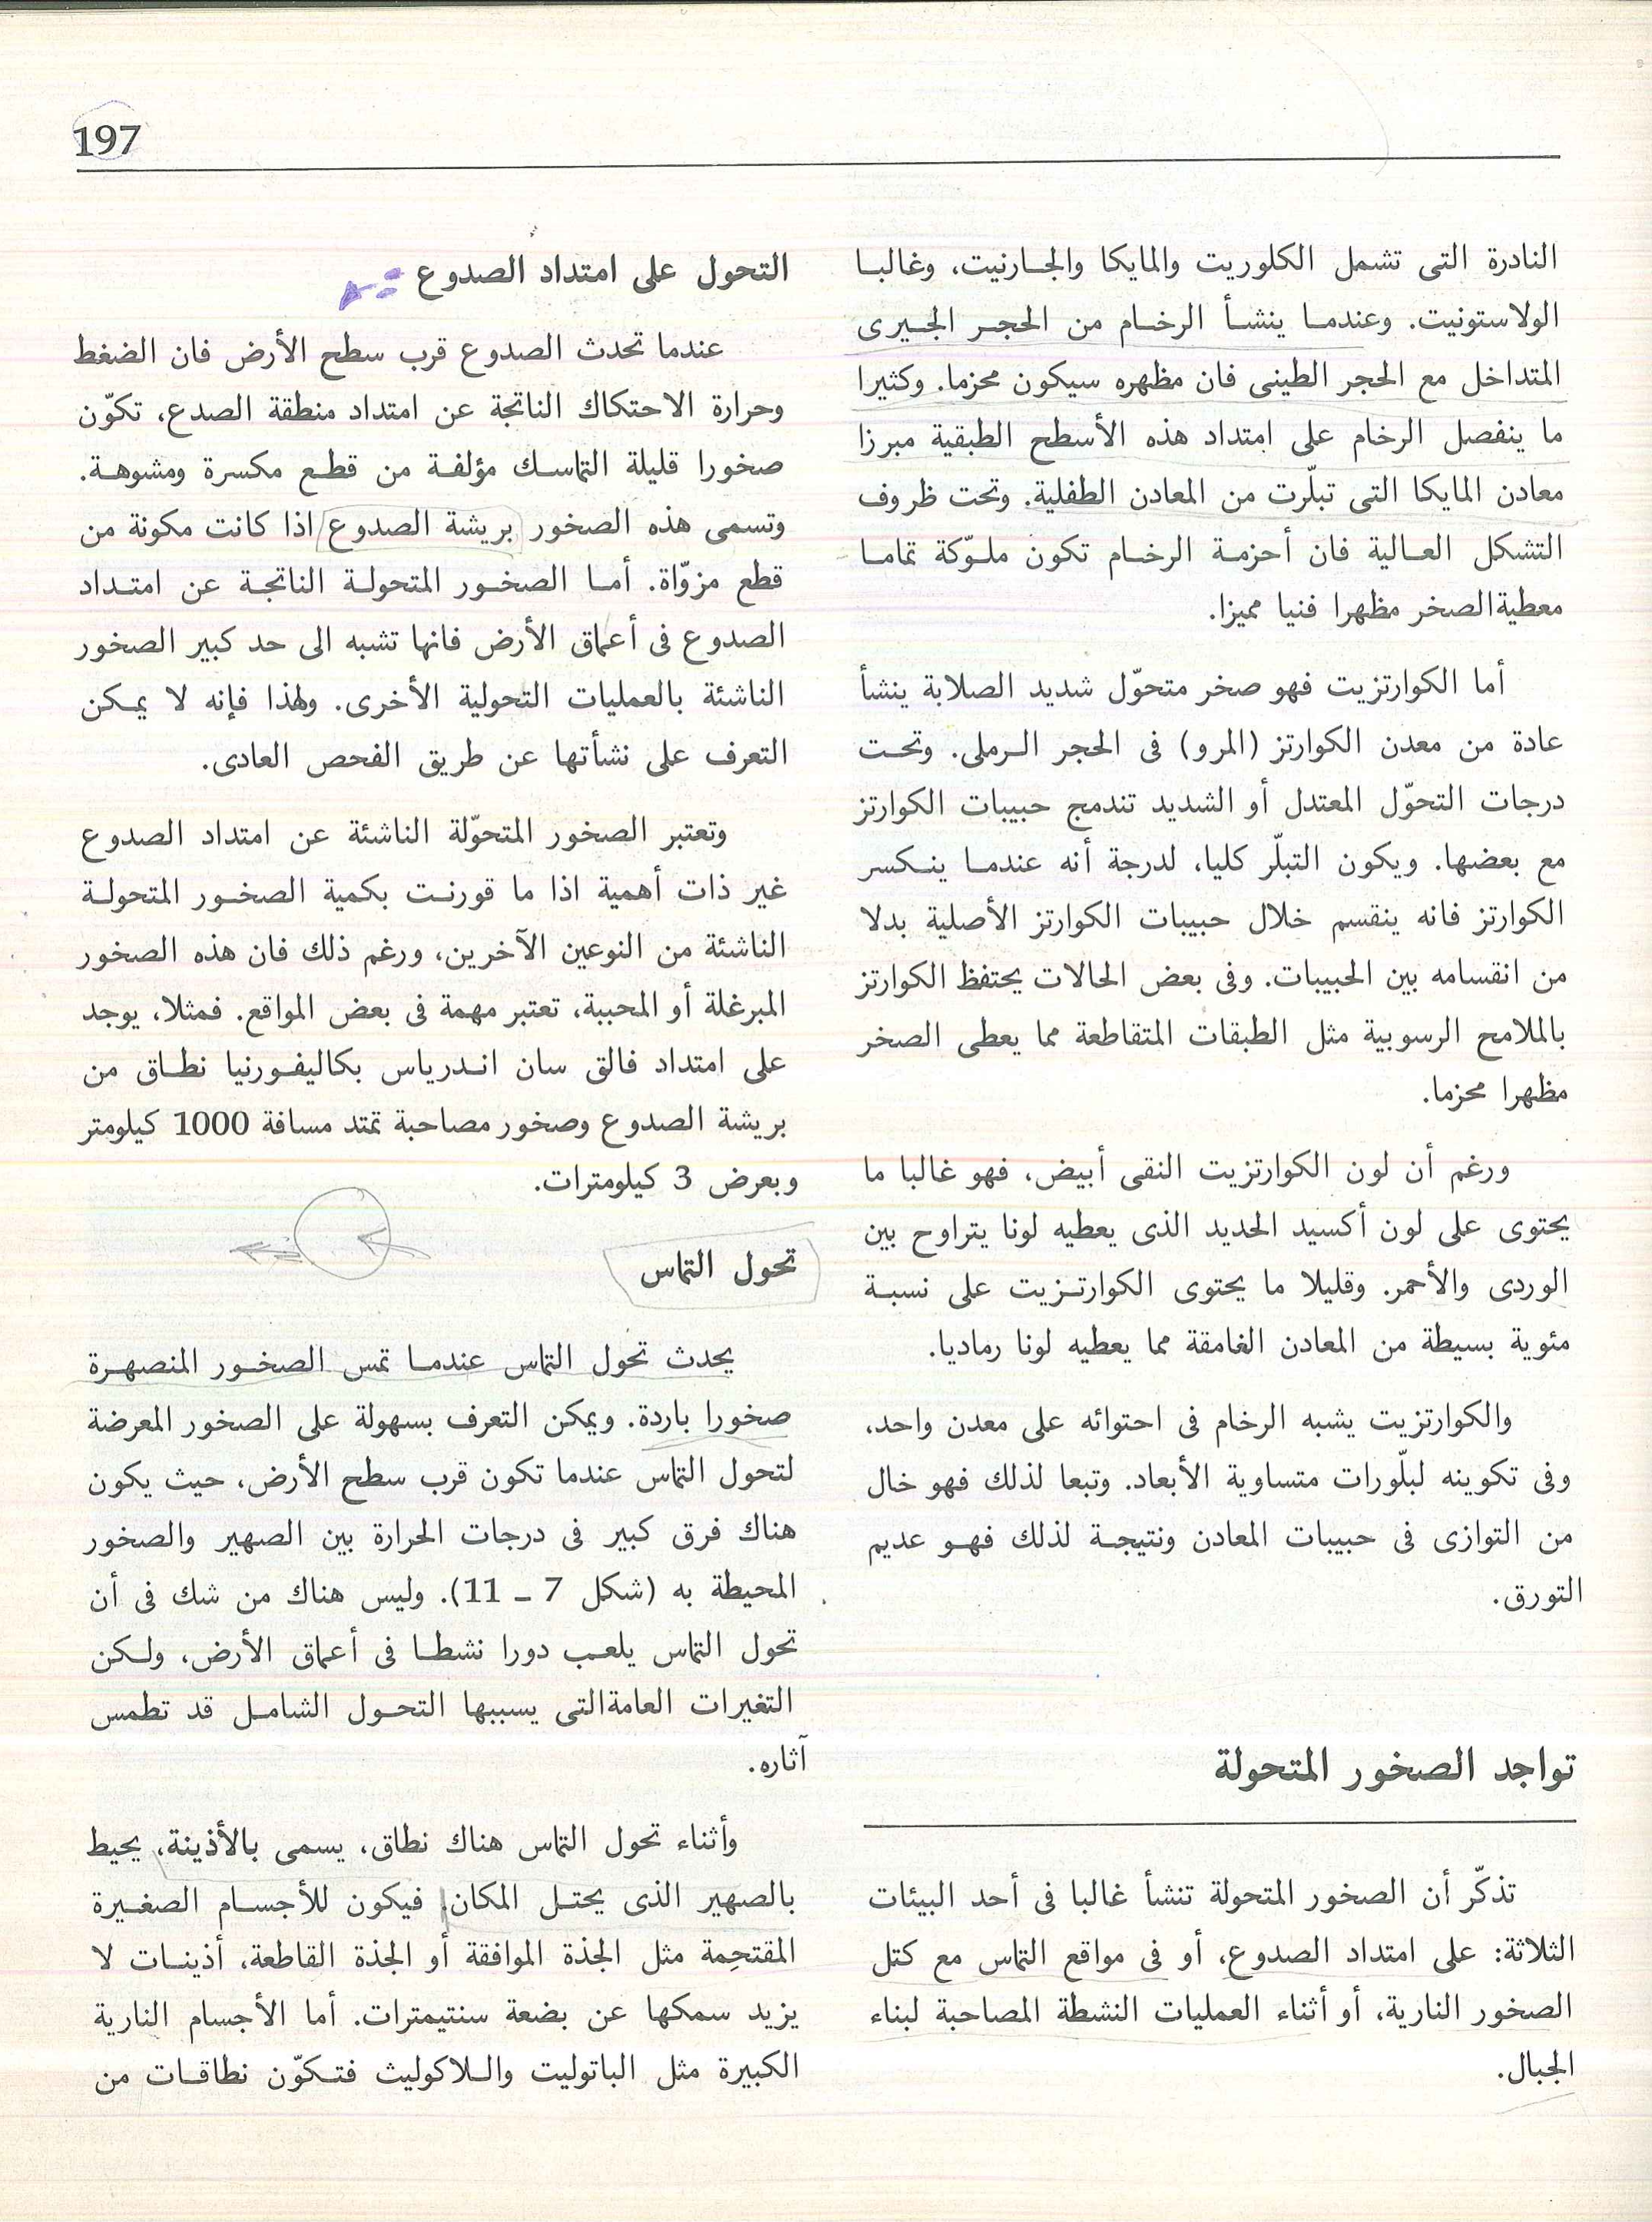 197
النادرة التى تشمل الكلوريت والمايكا والجـارنيت، وغالبـا
الولاستونيت. وعندمـا ينشـأ الرخـام من الحجـر الجـيرى
المتداخل مع الحجر الطينى فان مظهره سيكون محزما. وكثيرا
ما ينفصل الرخام على امتداد هذه الأسطح الطبقية مبرزا
معادن المايكا التى تبلّرت من المعادن الطفلية. وتحت ظروف
التشكل العـالية فان أحزمـة الرخـام تكون ملـوّكة تمامـا
معطية الصخر مظهرا فنيا مميزا.
أما الكوارتزيت فهو صخر متحوّل شديد الصلابة ينشأ
عادة من معدن الكوارتز (المرو) فى الحجر الـرملى. وتحـت
درجات التحوّل المعتدل أو الشديد تندمج حبيبات الكوارتز
مع بعضها. ويكون التبلّر كليا، لدرجة أنه عندمـا ينـكسر
الكوارتز فانه ينقسم خلال حبيبات الكوارتز الأصلية بدلا
من انقسامه بين الحبيبات. وفى بعض الحالات يحتفظ الكوارتز
بالملامح الرسوبية مثل الطبقات المتقاطعة مما يعطى الصخر
مظهرا محزما.
ورغم أن لون الكوارتزيت النقى أبيض، فهو غالبا ما
يحتوى على لون أكسيد الحديد الذى يعطيه لونا يتراوح بين
الوردى والأحمر. وقليلا ما يحتوى الكوارتـزيت على نسبـة
مئوية بسيطة من المعادن الغامقة مما يعطيه لونا رماديا.
والكوارتزيت يشبه الرخام فى احتوائه على معدن واحد،
وفى تكوينه لبلّورات متساوية الأبعاد. وتبعا لذلك فهو خال
من التوازى فى حبيبات المعادن ونتيجـة لذلك فهـو عديم
التورق.
تواجد الصخور المتحولة
تذكّر أن الصخور المتحولة تنشأ غالبا فى أحد البيئات
الثلاثة: على امتداد الصدوع، أو فى مواقع التماس مع كتل
الصخور النارية، أو أثناء العمليات النشطة المصاحبة لبناء
الجبال.
التحول على امتداد الصدوع
عندما تحدث الصدوع قرب سطح الأرض فان الضغط
وحرارة الاحتكاك الناتجة عن امتداد منطقة الصدع، تكوّن
صخورا قليلة التماسـك مؤلفـة من قطـع مكسرة ومشوهـة.
وتسمى هذه الصخور بريشة الصدوع اذا كانت مكونة من
قطع مزوّاة. أمـا الصخـور المتحولـة الناتجـة عن امتـداد
الصدوع فى أعماق الأرض فانها تشبه الى حد كبير الصخور
الناشئة بالعمليات التحولية الأخرى. ولهذا فإنه لا يمـكن
التعرف على نشأتها عن طريق الفحص العادى.
وتعتبر الصخور المتحوّلة الناشئة عن امتداد الصدوع
غير ذات أهمية اذا ما قورنـت بكمية الصخـور المتحولـة
الناشئة من النوعين الآخرين، ورغم ذلك فان هذه الصخور
المبرغلة أو المحببة، تعتبر مهمة فى بعض المواقع. فمثلا، يوجد
على امتداد فالق سان انـدرياس بكاليفـورنيا نطـاق من
بريشة الصدوع وصخور مصاحبة تمتد مسافة 1000 كيلومتر
وبعرض 3 كيلومترات.
تحول التماس
يحدث تحول التماس عندمـا تمس الصخـور المنصهـرة
صخورا باردة. ويمكن التعرف بسهولة على الصخور المعرضة
لتحول التماس عندما تكون قرب سطح الأرض، حيث يكون
هناك فرق كبير فى درجات الحرارة بين الصهير والصخور
المحيطة به (شكل 7 ـ 11). وليس هناك من شك فى أن
تحول التماس يلعـب دورا نشطـا فى أعماق الأرض، ولـكن
التغيرات العامة التى يسببها التحـول الشامـل قد تطمس
آثاره.
وأثناء تحول التماس هناك نطاق، يسمى بالأذينة، يحيط
بالصهير الذى يحتـل المكان. فيكون للأجسـام الصغـيرة
المقتحِمة مثل الجذة الموافقة أو الجذة القاطعة، أذينـات لا
يزيد سمكها عن بضعة سنتيمترات. أما الأجسام النارية
الكبيرة مثل الباتوليت والـلاكوليث فتـكوّن نطاقـات من